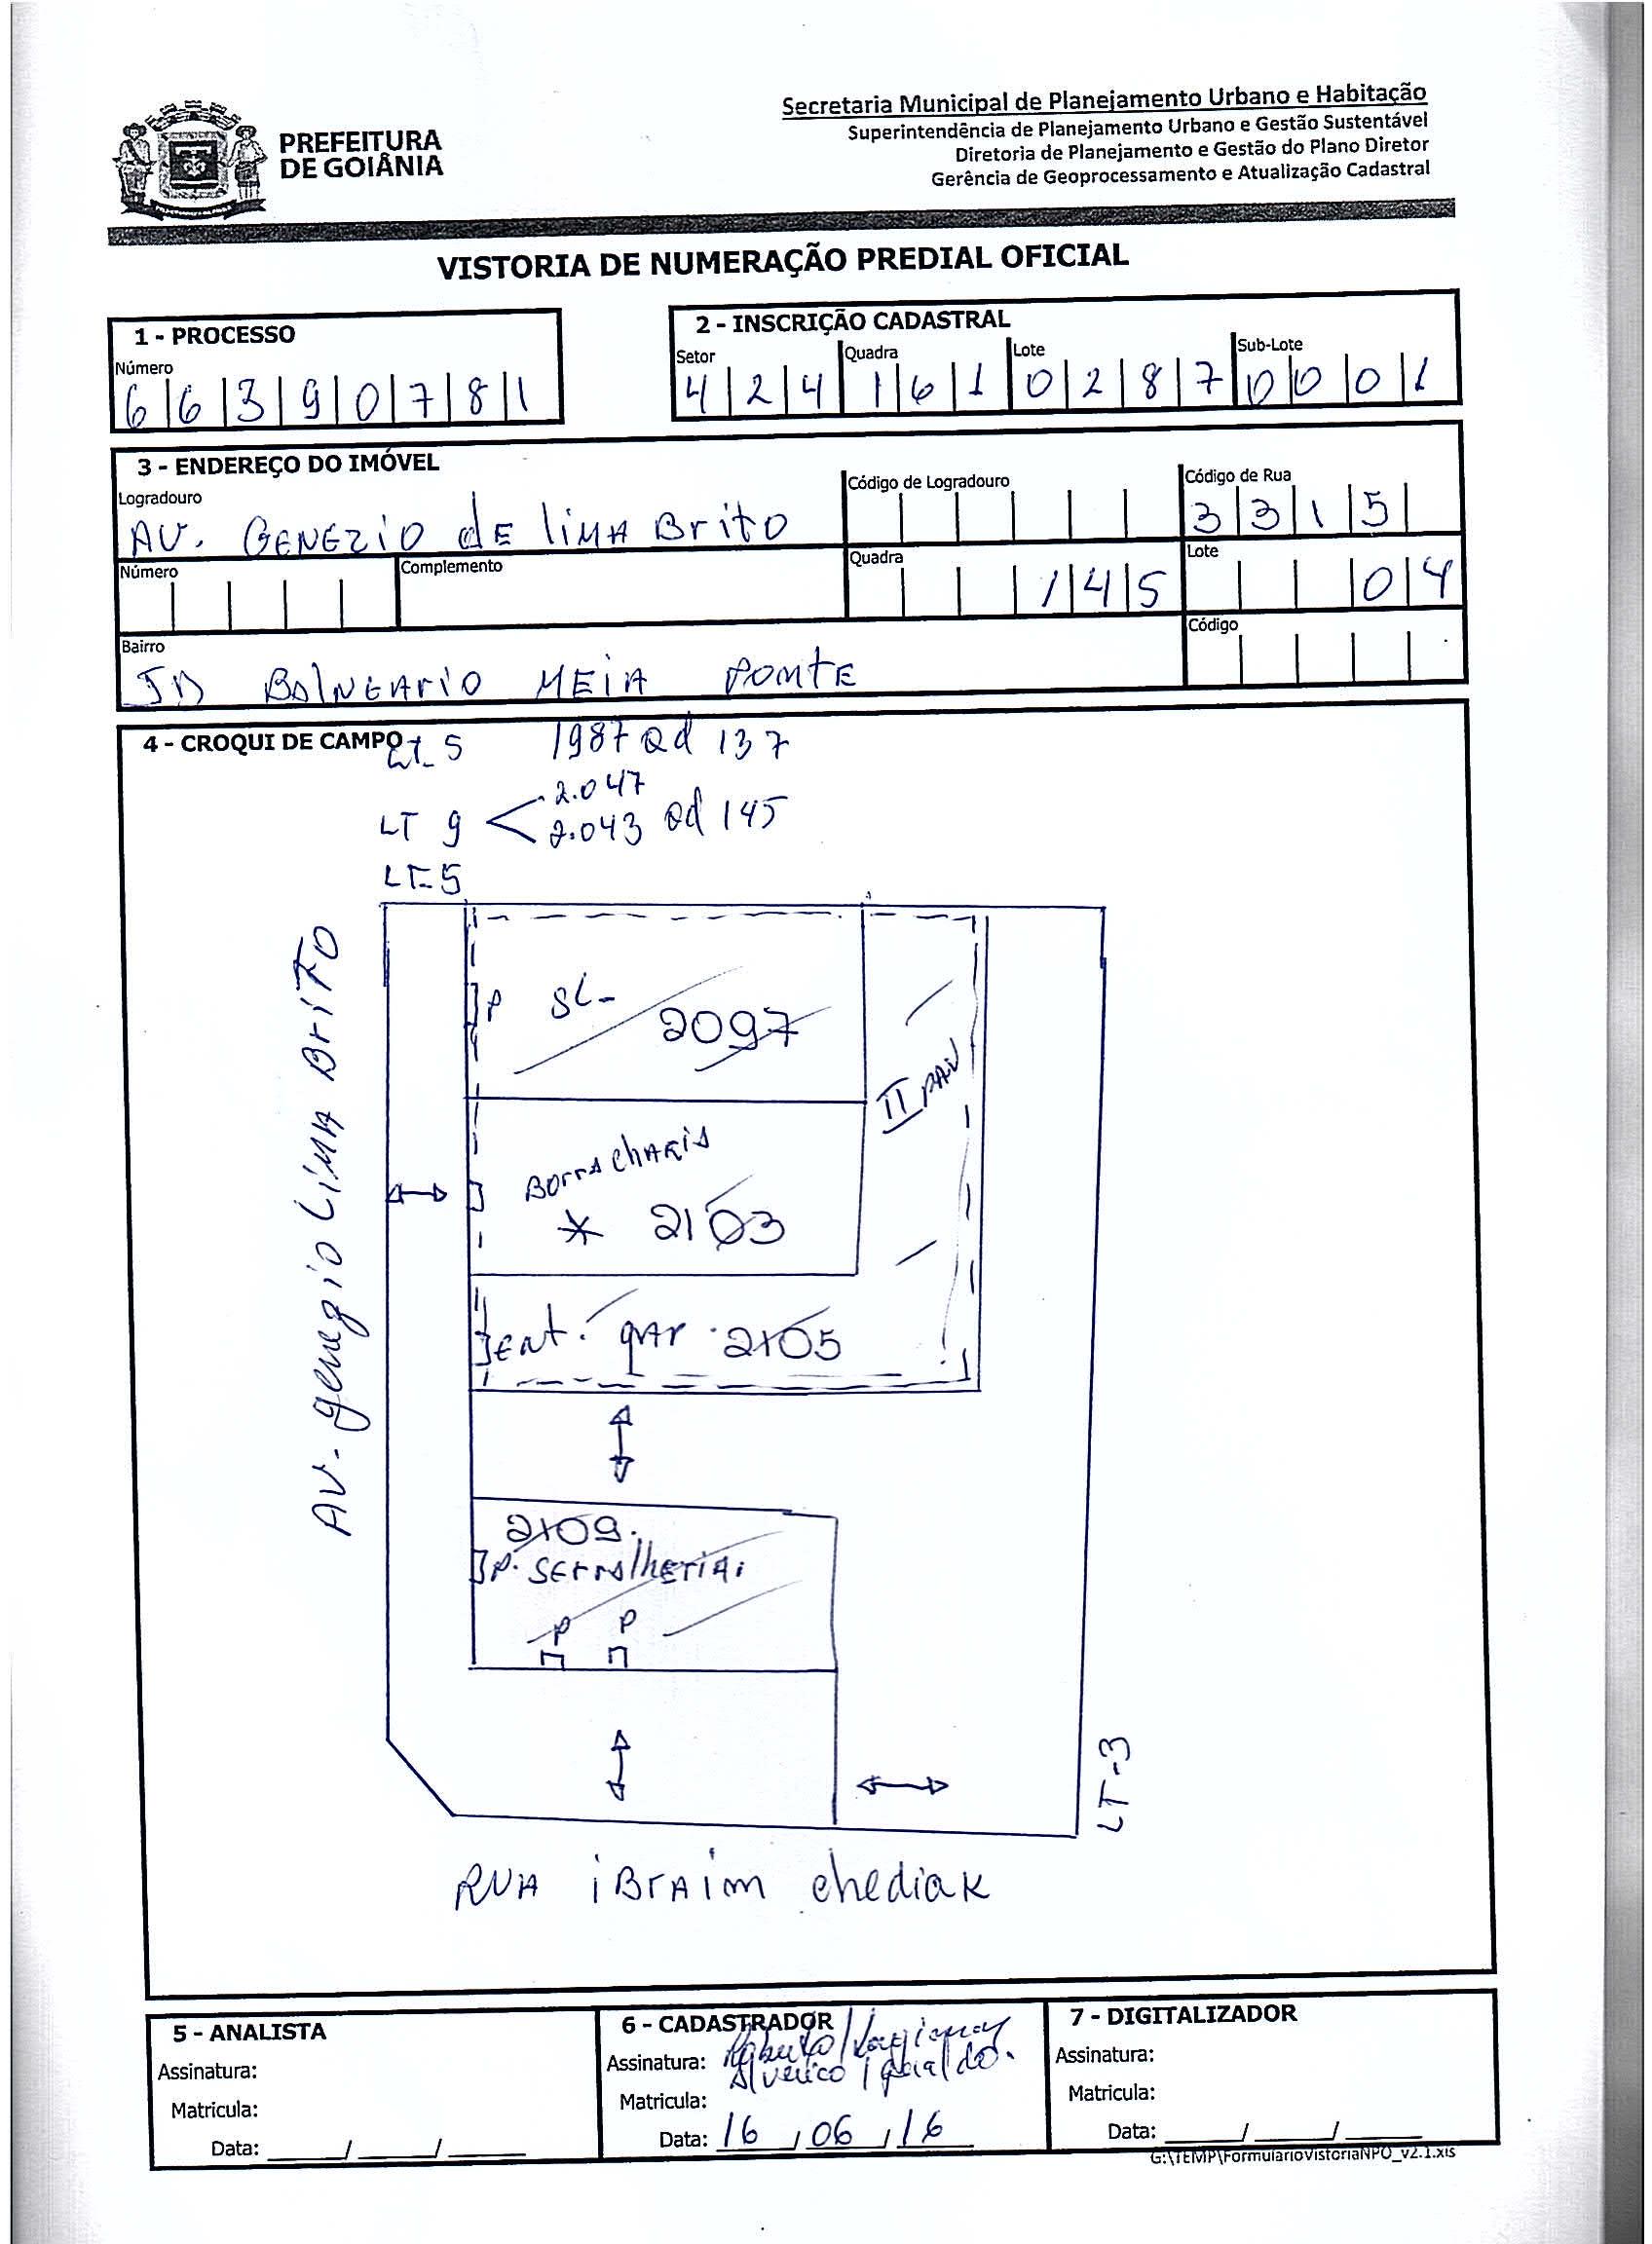 PREFEITURA
DE GOIÂNIA
Secretaria Municipal de Planejamento Urbano e Habitação
Superintendência de Planejamento Urbano e Gestão Sustentável
Diretoria de Planejamento e Gestão do Plano Diretor
Gerência de Geoprocessamento e Atualização Cadastral
VISTORIA DE NUMERAÇÃO PREDIAL OFICIAL
1 - PROCESSO
Número
6 6 3 9 0 7 8 1
2 - INSCRIÇÃO CADASTRAL
Setor Quadra Lote Sub-Lote
4 2 4 1 6 1 0 2 8 7 0 0 0 1
3 - ENDEREÇO DO IMÓVEL
Logradouro Código de Logradouro Código de Rua
AV. GENEZIO dE liMA Brito 3 3 1 5
Número Complemento Quadra Lote
1 4 5 0 4
Bairro Código
JD BAlNEArio MEiA PONtE
4 - CROQUI DE CAMPO
LT- 5 1987 Qd 137
LT 9 2.047
2.043 Qd 145
LT-5
AV- genezio LiMA BriTO
P SL- 2097
II PAV
BorrAchAriA
* 2103
ENt. gAr 2105
2109
P. SErrAlhEriA
P P
LT-3
RUA iBrAim chediak
5 - ANALISTA
Assinatura:
Matricula:
Data: ____/____/____
6 - CADASTRADOR
Assinatura:
Matricula:
Data: 16 / 06 / 16
7 - DIGITALIZADOR
Assinatura:
Matricula:
Data: ____/____/____
G:\TEMP\FormularioVistoriaNPO_v2.1.xls